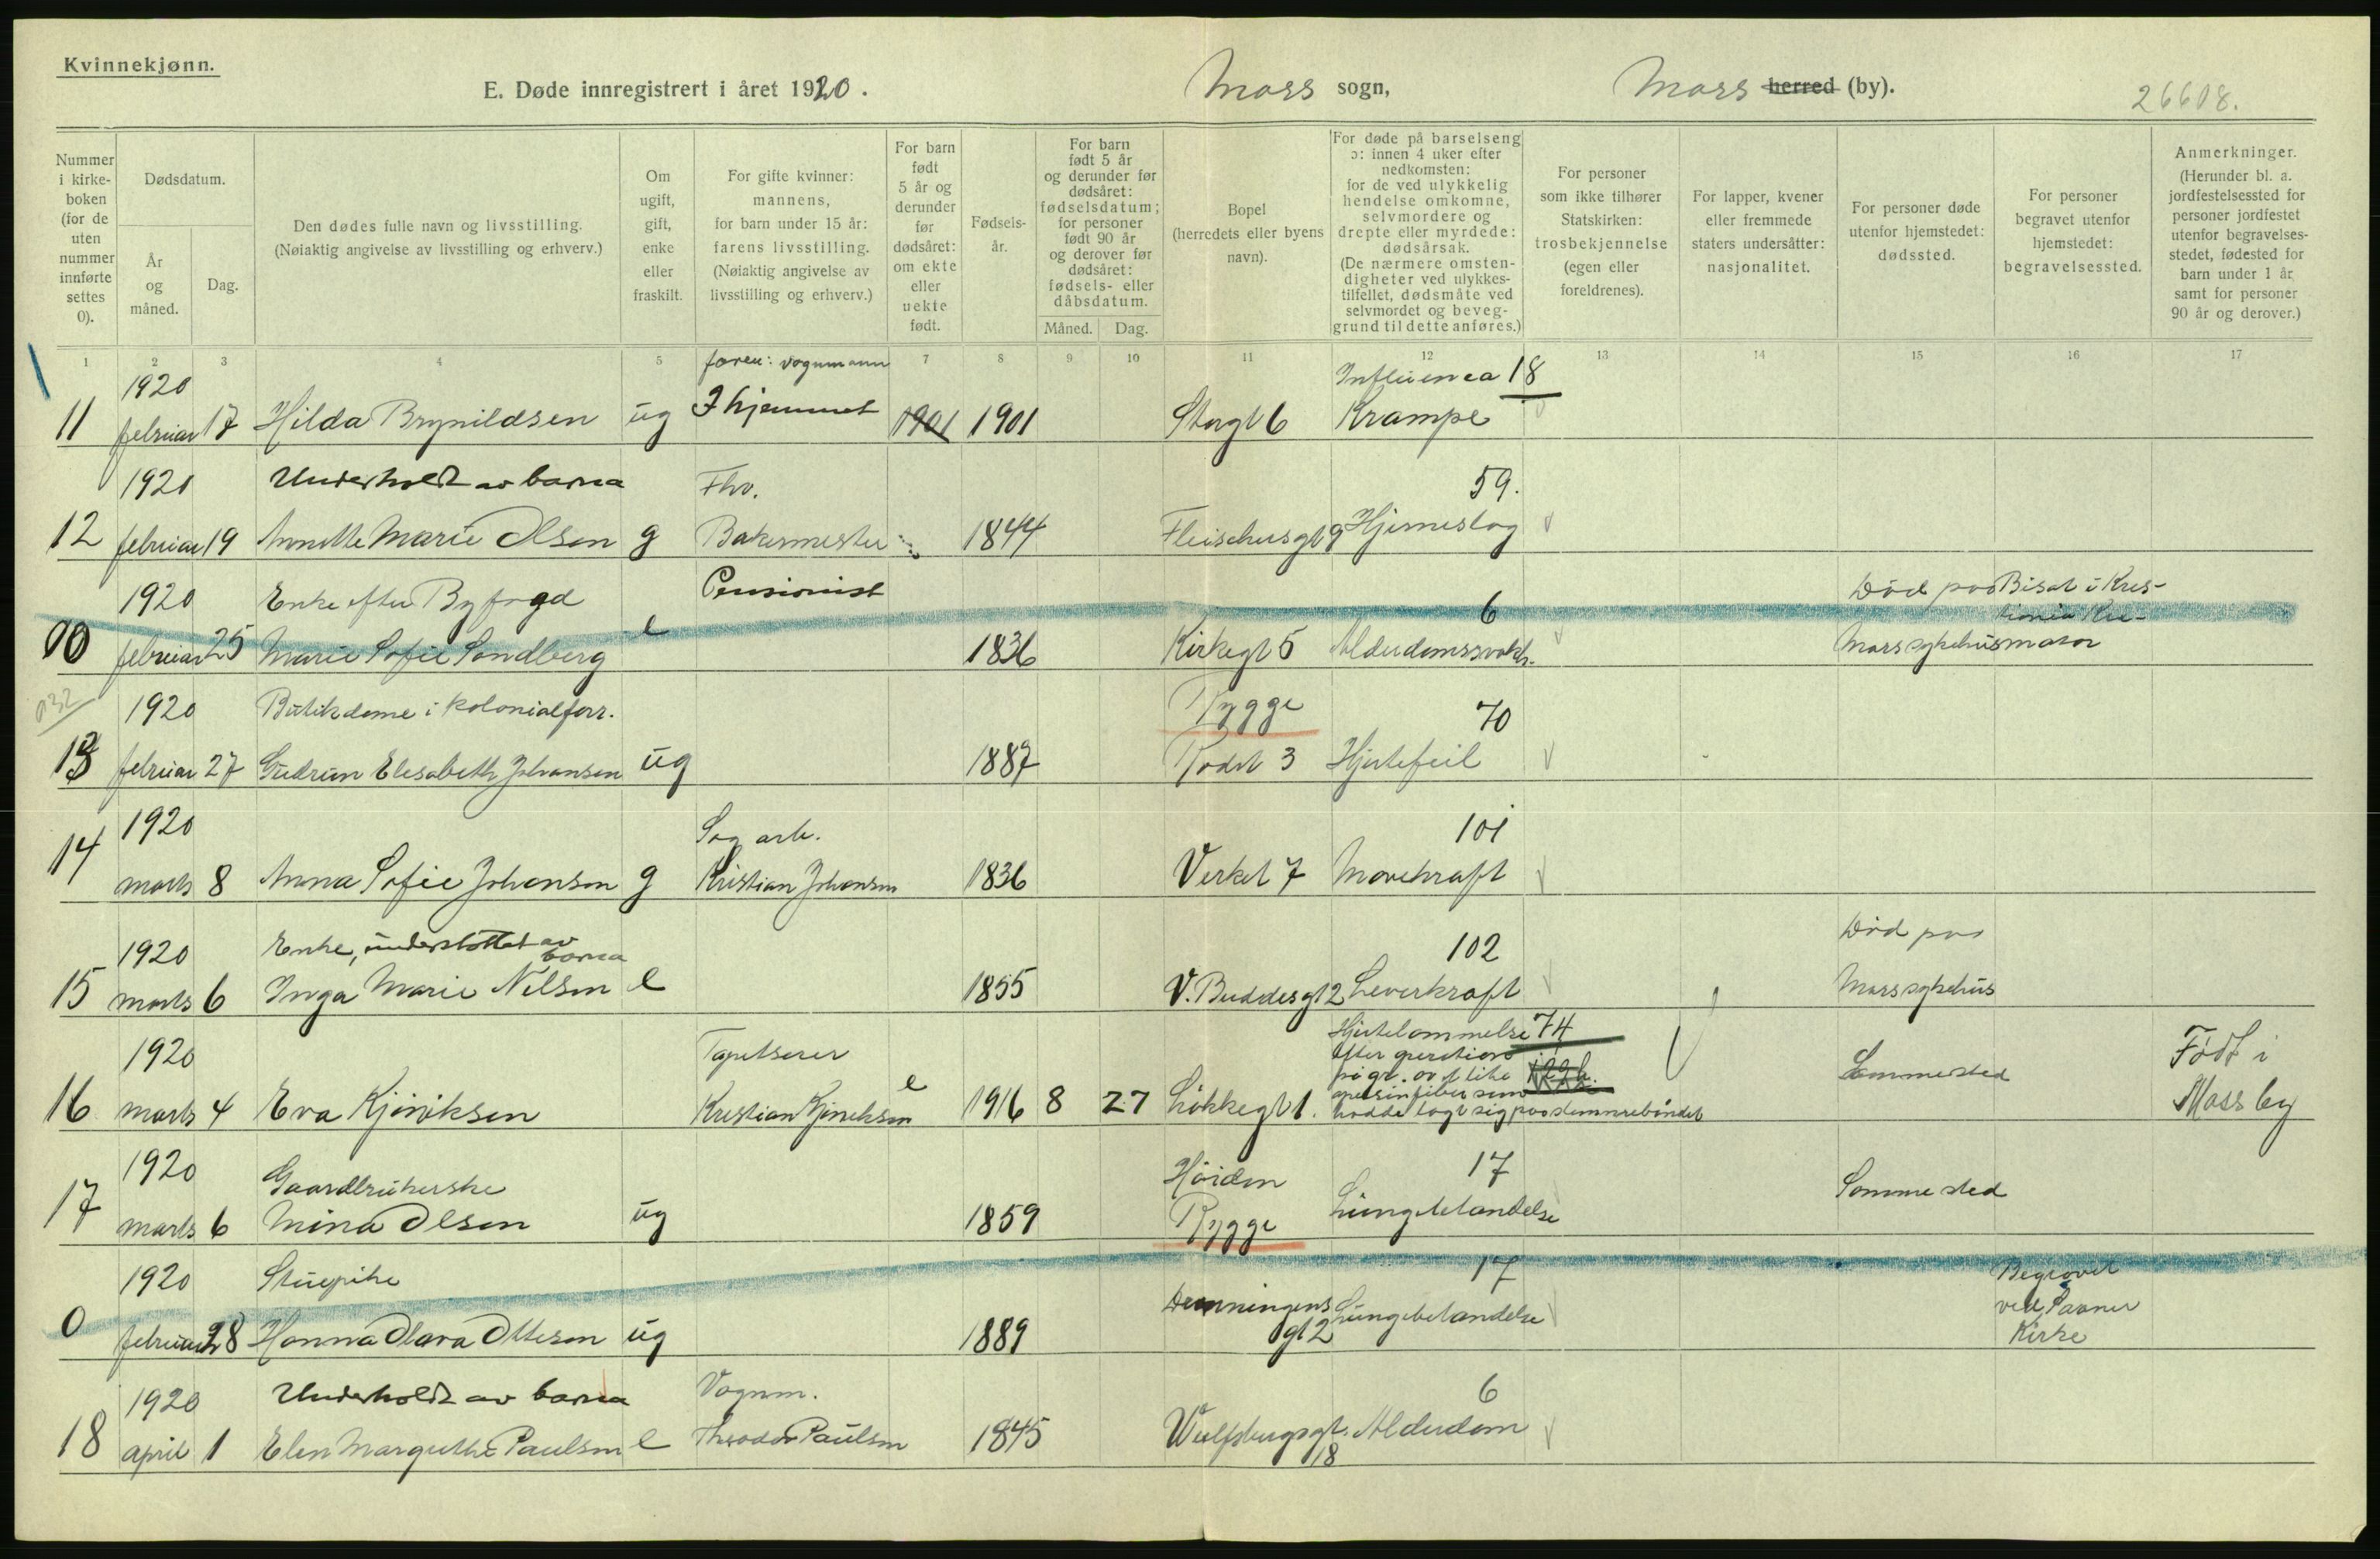 Kvinnekjønn.
E. Døde innregistrert i året 1920.
Moss sogn,
Moss herred (by).
26608.
Nummer i kirkeboken (for de uten nummer innførte settes 0).
Dødsdatum.
År og måned.
Dag.
Den dødes fulle navn og livsstilling.
(Nøiaktig angivelse av livsstilling og erhverv.)
Om ugift, gift, enke eller fraskilt.
For gifte kvinner: mannens, for barn under 15 år: farens livsstilling.
(Nøiaktig angivelse av livsstilling og erhverv.)
For barn født 5 år og derunder før dødsåret: om ekte eller uekte født.
Fødsels-år.
For barn født 5 år og derunder før dødsåret: fødselsdatum; for personer født 90 år og derover før dødsåret: fødsels- eller dåbsdatum.
Måned.
Dag.
Bopel (herredets eller byens navn).
For døde på barselseng ɔ: innen 4 uker efter nedkomsten: for de ved ulykkelig hendelse omkomne, selvmordere og drepte eller myrdede: dødsårsak.
(De nærmere omsten-digheter ved ulykkes-tilfellet, dødsmåte ved selvmordet og beveg-grund til dette anføres.)
For personer som ikke tilhører Statskirken: trosbekjennelse (egen eller foreldrenes).
For lapper, kvener eller fremmede staters undersåtter: nasjonalitet.
For personer døde utenfor hjemstedet: dødssted.
For personer begravet utenfor hjemstedet: begravelsessted.
Anmerkninger.
(Herunder bl. a. jordfestelsessted for personer jordfestet utenfor begravelses-stedet, fødested for barn under 1 år samt for personer 90 år og derover.)
1 2 3 4 5 7 8 9 10 11 12 13 14 15 16 17
faren: vognmann
1920 Influensa 18
11 februar 17 Hilda Brynildsen ug I hjemmet 1901 1901 Storgt 6 Krampe
1920 Underholdt av barna Fhv. 59.
12 februar 19 Annette Marie Olsen g Bakermester 1844 Fleischersgt 9 Hjerneslag
1920 Enke efter Byfogd Pensionist 6 Død paa Bisat i Kris-
tiania Kre-
0 februar 25 Marie Sofie Sandberg e 1836 Kirkegt 5 Alderdomssvakh. Moss sykehus mator
032
1920 Butikdame i kolonialforr. Rygge 70
13 februar 27 Gudrun Elesabeth Johansen ug 1887 3 Hjertefeil
1920 Sag arb. 101
14 marts 8 Anna Sofie Johansen g Kristian Johansen 1836 Verket 7 Mavekraft
1920 Enke, understøttet av barna 102 Død paa
15 marts 6 Inga Marie Nilsen e 1855 V. Buddesgt 2 Leverkraft Moss sykehus
1920 Tapetserer Hjertelammelse 74
efter operation
Født i
16 marts 4 Eva Kjiniksen Kristian Kjiniksen e 1916 8 27 Løkkegt 1. Sammested Moss by
hadde lagt sig paa stemmebåndet
1920 Gaardbrukerske Høiden 17
17 marts 6 Mina Olsen ug 1859 Rygge Lungebetændelse Sammested
1920 Stuepike 17 Begravet
0 februar 28 Hanna Olava Ottesen ug 1889 Henningens gt 2 Lungebetændelse ved Saaner Kirke
1920 Underholdt av barna Vognm. 6
18 april 1 Elen Margrethe Paulsen e Theodor Paulsen 1845 Wulfsbergsgt. 18 Alderdom